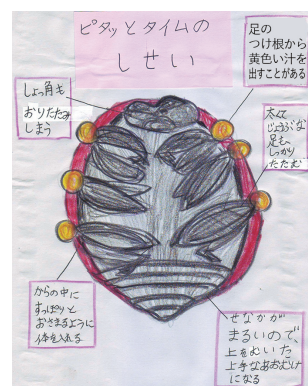 ピタッとタイムの
しせい
足の
つけ根から
黄色い汁を
出すことがある
しょっ角も
おりたたみ
しまう
太くて
じょうぶな
足も、
しっかり
たたむ
からの中に
すっぽりと
おさまるように
体を入れる
せなかが
まるいので、
上をむいた
上手なあおむけ
になる